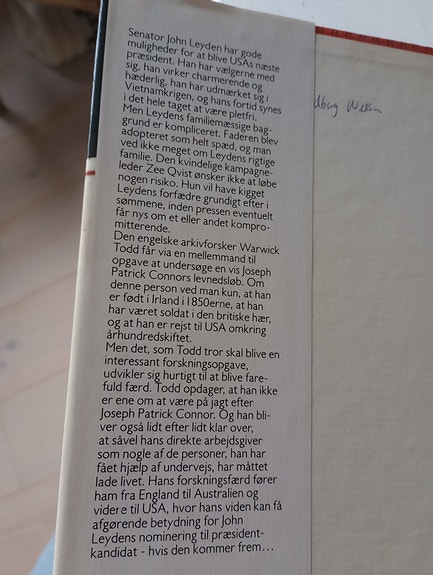 Senator John Leyden har gode
muligheder for at blive USAs næste
præsident. Han har vælgerne med
sig, han virker charmerende og
hæderlig, han har udmærket sig i
Vietnamkrigen, og hans fortid synes
i det hele taget at være pletfri.
Men Leydens familiemæssige bag-
grund er kompliceret. Faderen blev
adopteret som helt spæd, og man
ved ikke meget om Leydens rigtige
familie. Den kvindelige kampagne-
leder Zee Qvist ønsker ikke at løbe
nogen risiko. Hun vil have kigget
Leydens forfædre grundigt efter i
sømmene, inden pressen eventuelt
får nys om et eller andet kompro-
mitterende.
Den engelske arkivforsker Warwick
Todd får via en mellemmand til
opgave at undersøge en vis Joseph
Patrick Connors levnedsløb. Om
denne person ved man kun, at han
er født i Irland i 1850erne, at han
har været soldat i den britiske hær,
og at han er rejst til USA omkring
århundredskiftet.
Men det, som Todd tror skal blive en
interessant forskningsopgave,
udvikler sig hurtigt til at blive fare-
fuld færd. Todd opdager, at han ikke
er ene om at være på jagt efter
Joseph Patrick Connor. Og han bli-
ver også lidt efter lidt klar over,
at såvel hans direkte arbejdsgiver
som nogle af de personer, han har
fået hjælp af undervejs, har måttet
lade livet. Hans forskningsfærd fører
ham fra England til Australien og
videre til USA, hvor hans viden kan få
afgørende betydning for John
Leydens nominering til præsident-
kandidat - hvis den kommer frem...